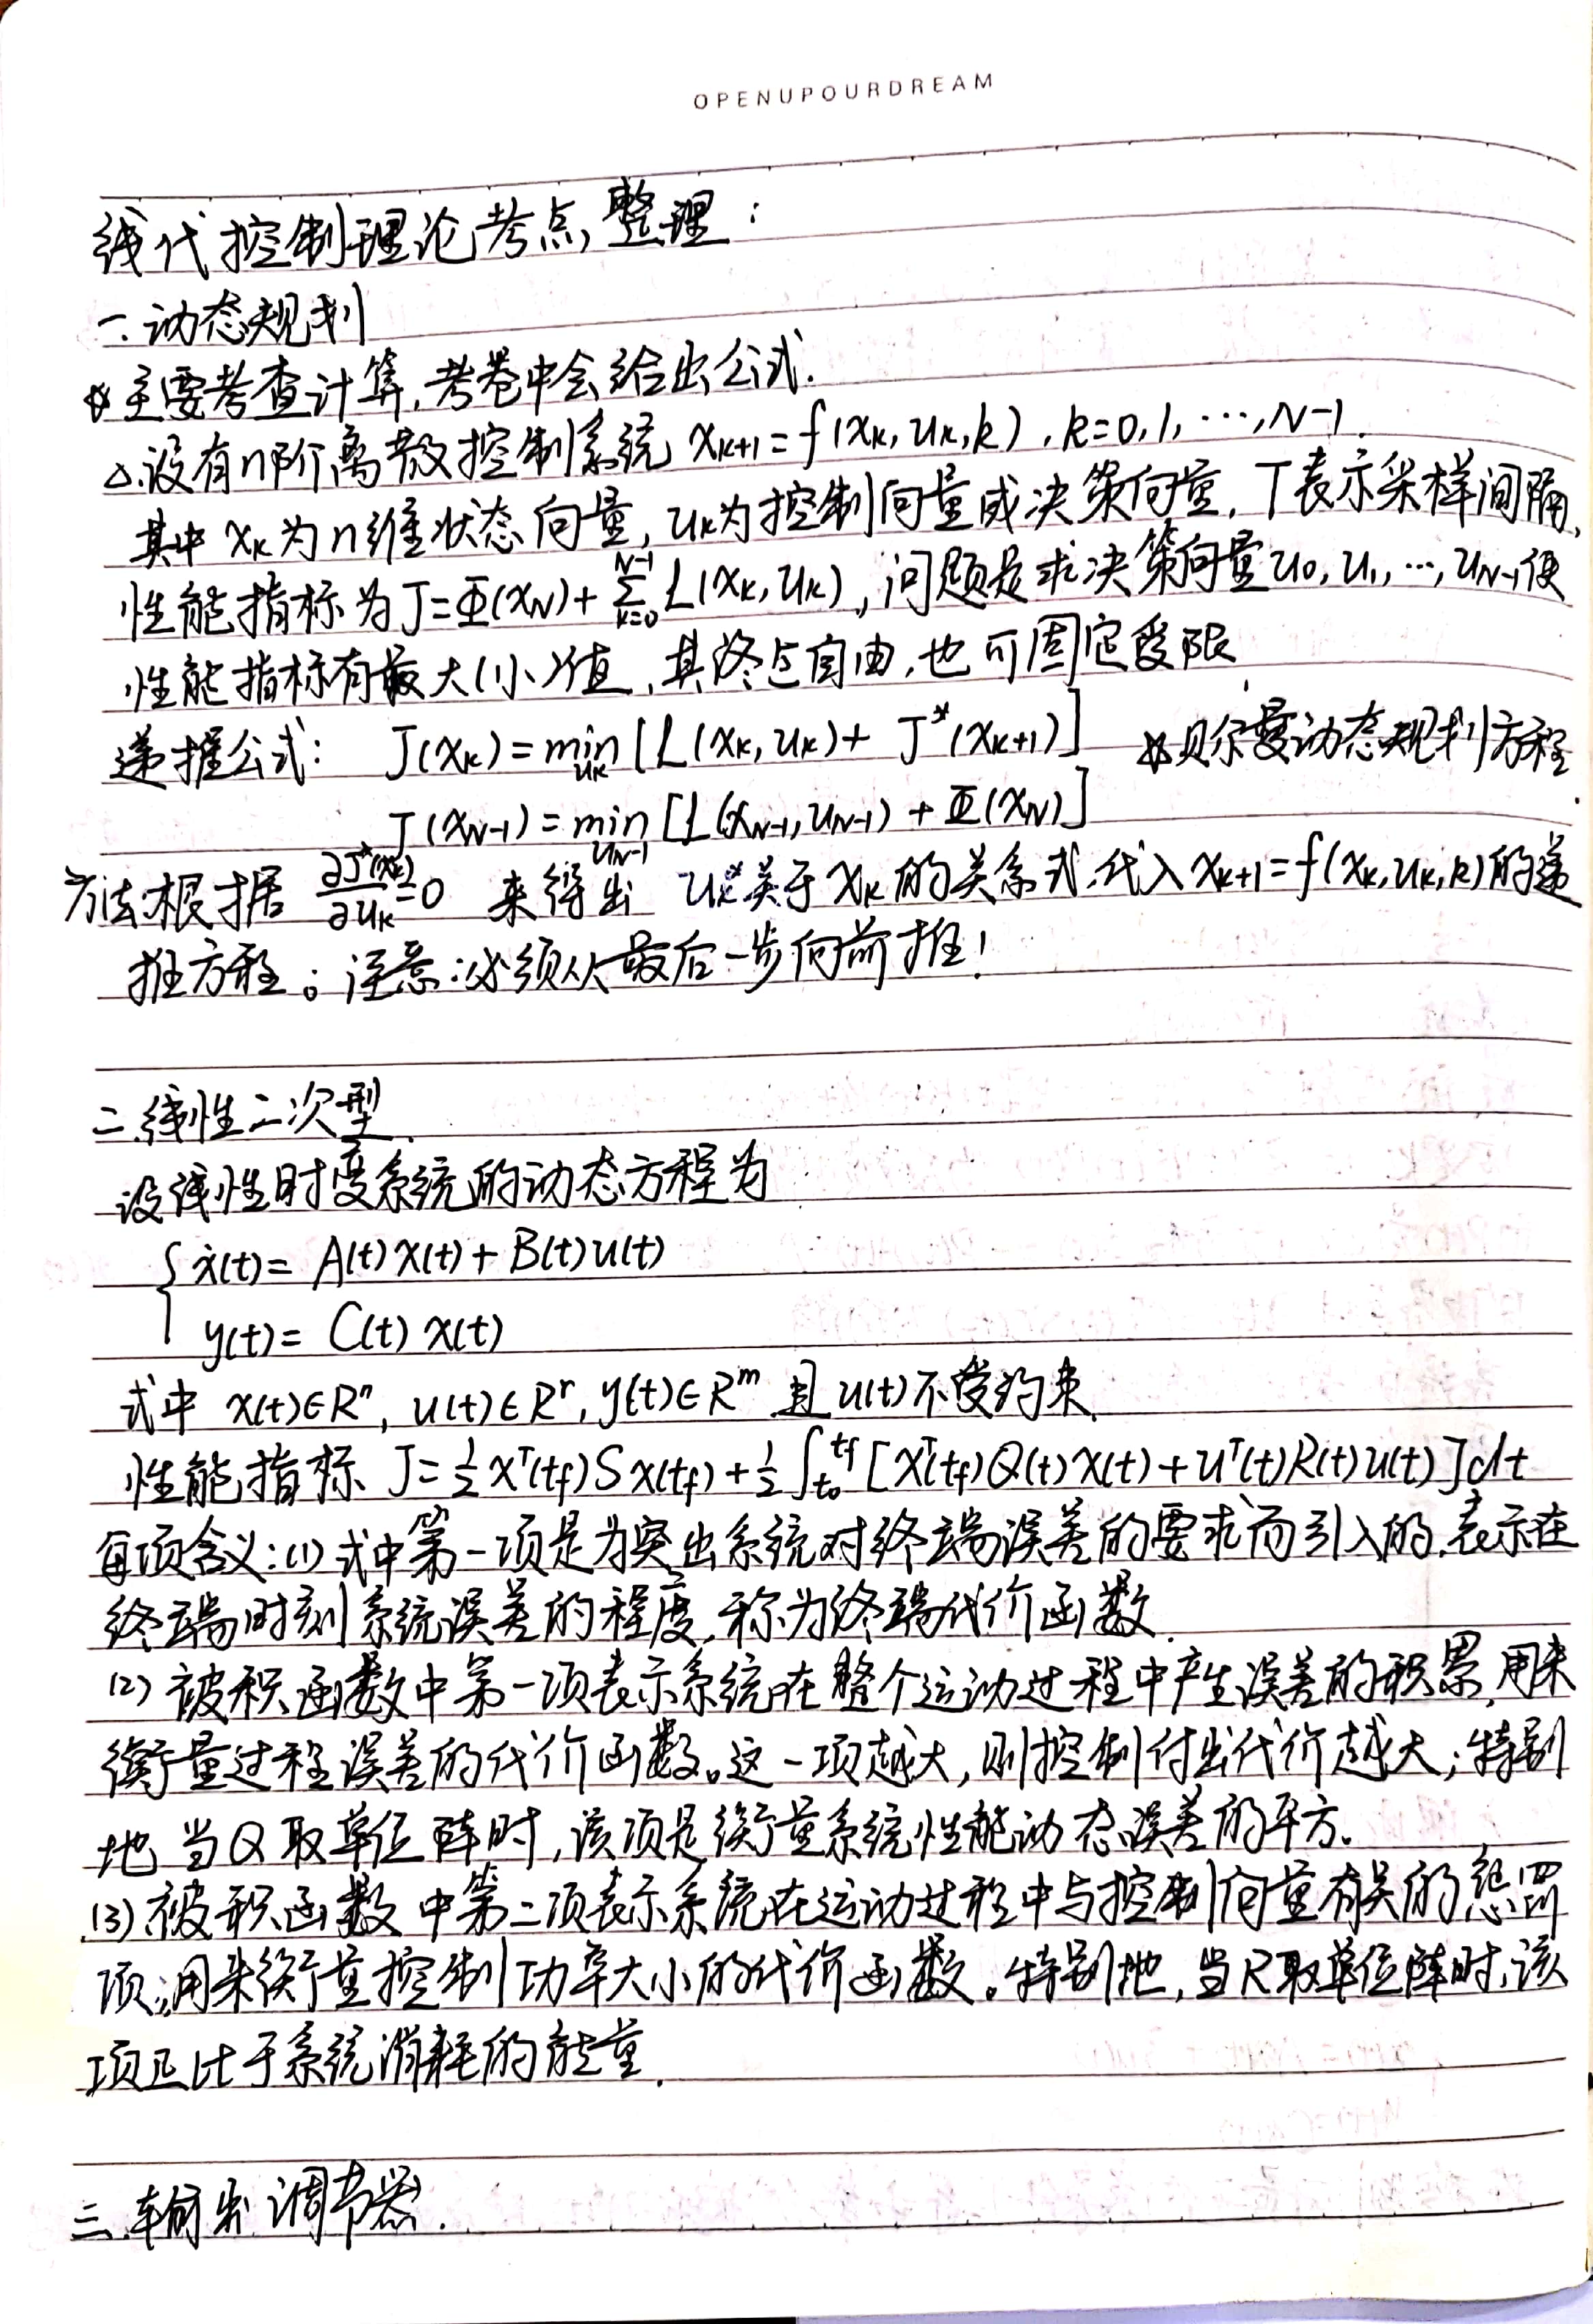 OPENUPOURDREAM
线代控制理论考点整理：
一.动态规划
☆主要考查计算,考卷中会给出公式.
△.设有n阶离散控制系统 xₖ₊₁=f(xₖ,uₖ,k),k=0,1,…,N-1.
其中 xₖ为n维状态向量,uₖ为控制向量或决策向量,T表示采样间隔,
性能指标为J=Φ(x_N)+∑_{k=0}^{N-1}L(xₖ,uₖ),问题是求决策向量u₀,u₁,…,u_{N-1}使
性能指标有最大(小)值,其终点自由,也可固定受限
递推公式: J(xₖ)=min_{uₖ}[L(xₖ,uₖ)+J*(xₖ₊₁)] ☆贝尔曼动态规划方程.
J(x_{N-1})=min_{u_{N-1}}[L(x_{N-1},u_{N-1})+Φ(x_N)]
方法:根据 ∂J*(xₖ)/∂uₖ=0 来得出 uₖ*关于xₖ的关系式,代入xₖ₊₁=f(xₖ,uₖ,k)的递
推方程。注意:必须从最后一步向前推!
二.线性二次型.
设线性时变系统的动态方程为
{ẋ(t)= A(t)x(t)+B(t)u(t)
y(t)= C(t)x(t)
式中 x(t)∈Rⁿ, u(t)∈Rʳ, y(t)∈Rᵐ 且u(t)不受约束.
性能指标 J=½xᵀ(tf)Sx(tf)+½∫_{t₀}^{tf}[xᵀ(tf)Q(t)x(t)+uᵀ(t)R(t)u(t)]dt
每项含义:(1)式中第一项是为突出系统对终端误差的要求而引入的,表示在
终端时刻系统误差的程度,称为终端代价函数.
(2)被积函数中第一项表示系统在整个运动过程中产生误差的积累,用来
衡量过程误差的代价函数。这一项越大,则控制付出代价越大;特别
地 当Q取单位阵时,该项是衡量系统性能动态误差的平方.
(3)被积函数中第二项表示系统在运动过程中与控制向量有关的惩罚
项;用来衡量控制功率大小的代价函数。特别地,当R取单位阵时,该
项正比于系统消耗的能量.
三.输出调节器.